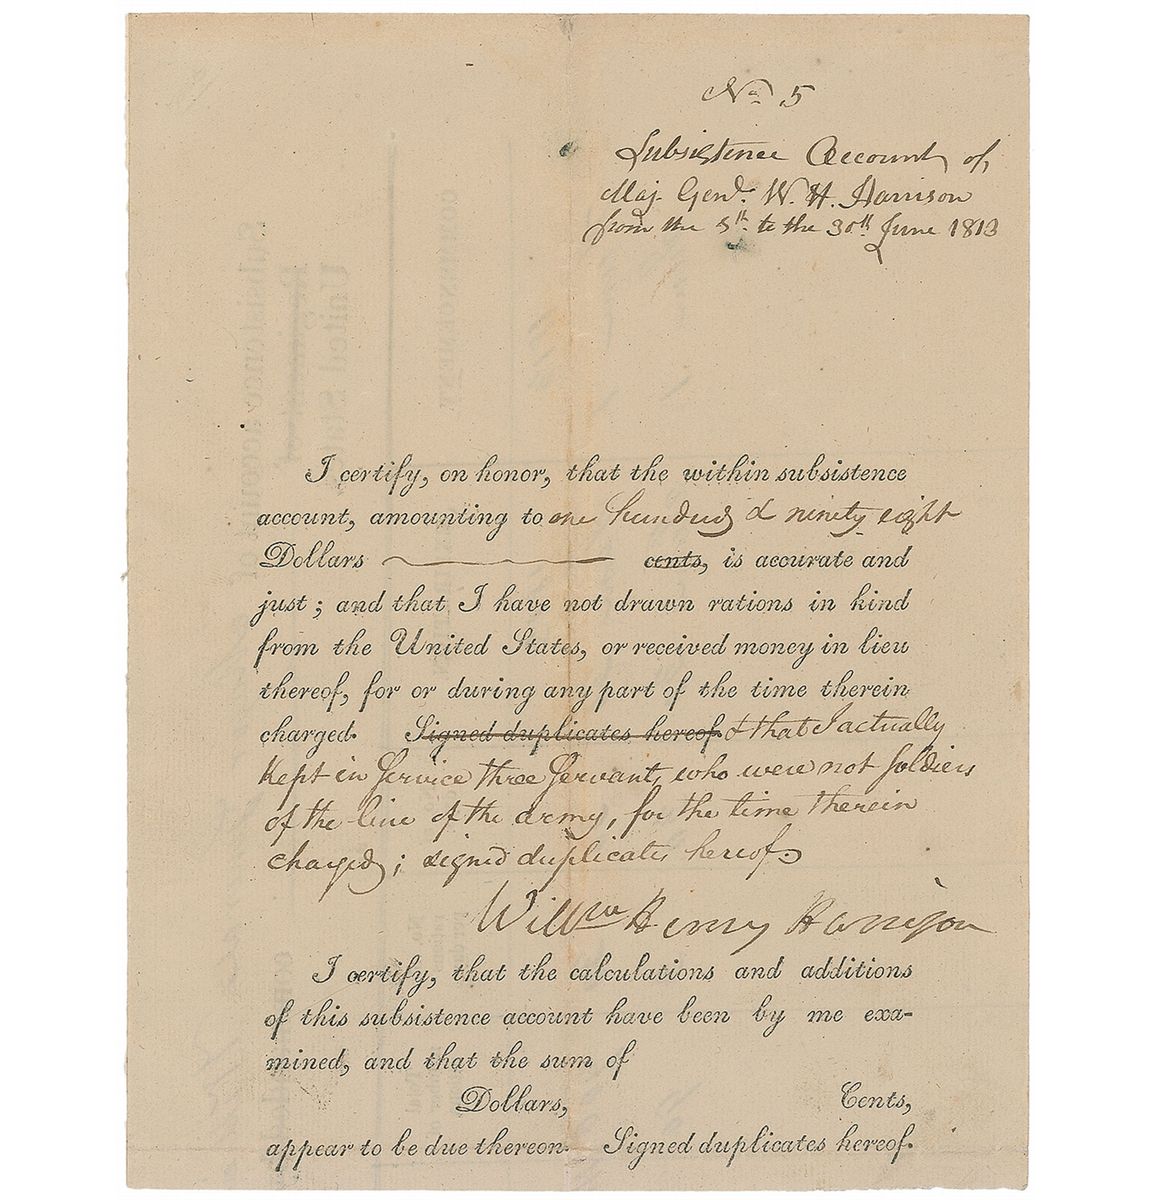 No. 5
Subsistence Account of
Maj. Genl. W. H. Harrison
from the 5th to the 30th June 1813
I certify, on honor, that the within subsistence
account, amounting to one hundred & ninety eight
Dollars cents, is accurate and
just; and that I have not drawn rations in kind
from the United States, or received money in lieu
thereof, for or during any part of the time therein
charged. Signed duplicates hereof & that I actually
Kept in Service three Servants, who were not Soldiers
of the line of the army, for the time therein
charged; signed duplicates hereof.
Willm Henry Harrison
I certify, that the calculations and additions
of this subsistence account have been by me exa-
mined, and that the sum of
Dollars, Cents,
appear to be due thereon. Signed duplicates hereof.